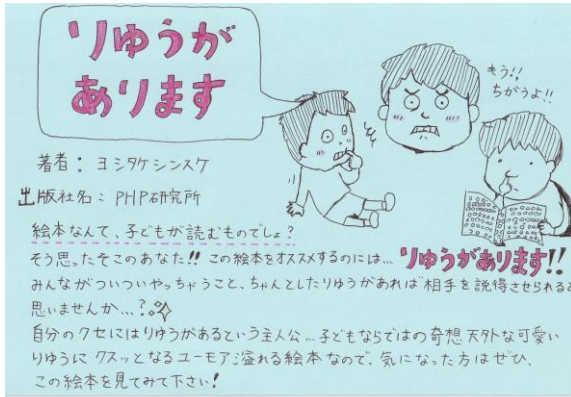 りゆうが
あります
もう!!
ちがうよ!!
著者：ヨシタケシンスケ
出版社名：PHP研究所
絵本なんて、子どもが読むものでしょ？
そう思ったそこのあなた!! この絵本をオススメするのには…りゆうがあります!!
みんながついついやっちゃうこと、ちゃんとしたりゆうがあれば相手を説得させられると
思いませんか…？
自分のクセにはりゆうがあるという主人公…子どもならではの奇想天外な可愛い
りゆうに クスッとなるユーモア溢れる絵本なので、気になった方はぜひ、
この絵本を見てみて下さい！